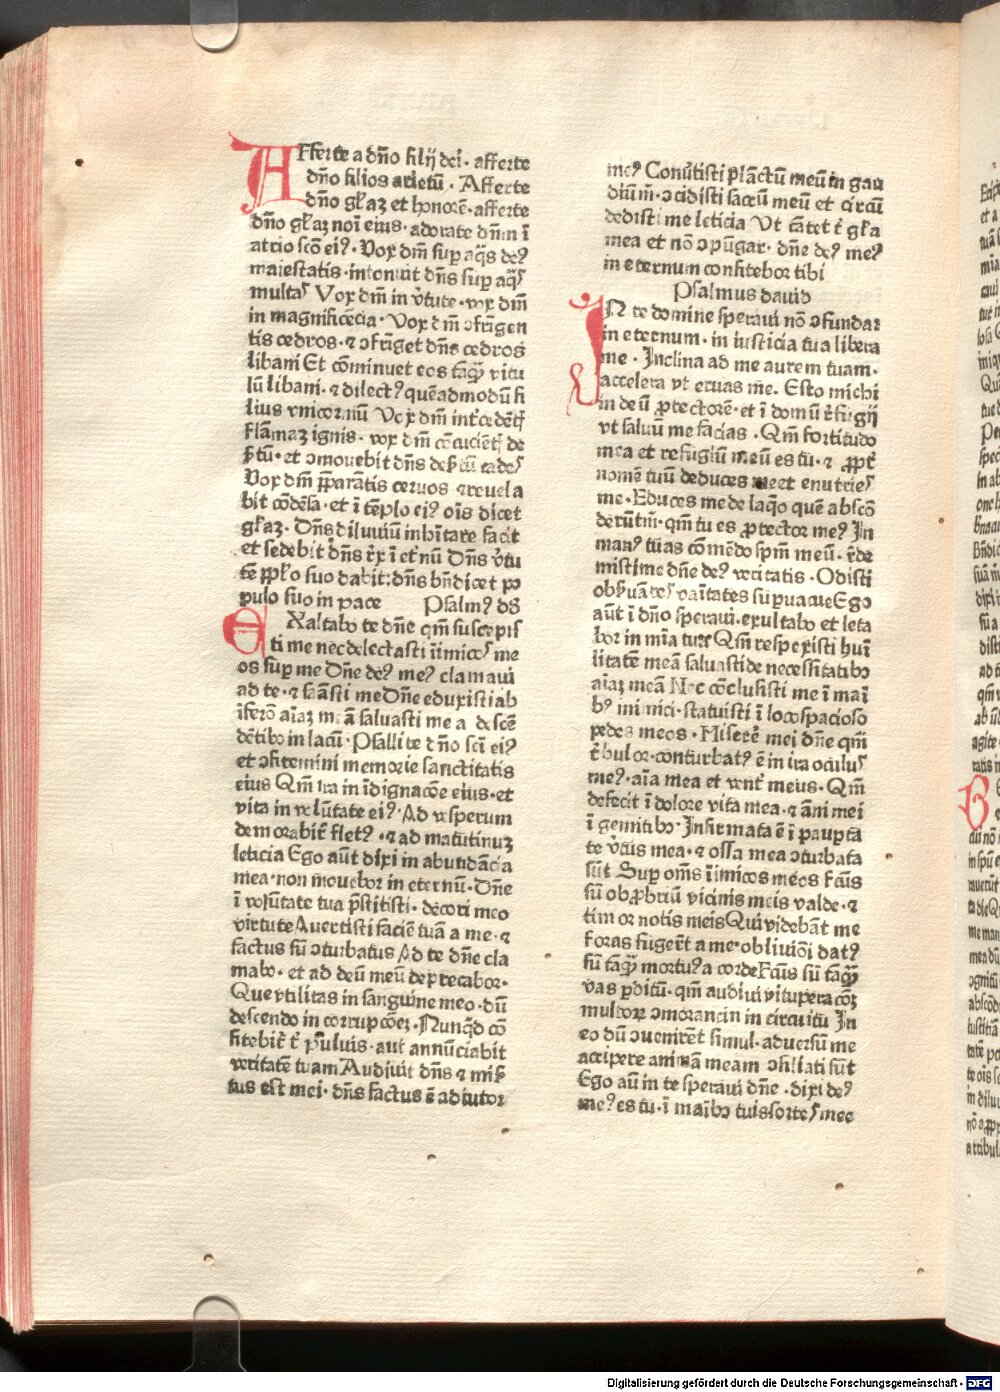 AFferte a dño filij dei · afferte
dño filios arietũ · Afferte
dño glꝛaꝫ et honorẽ · afferte
dño glꝛaꝫ noĩ eius · adorate dñm ĩ
atrio scõ eiꝰ · Vox dñi suꝑ aq̃s deꝰ
maiestatis · intonuit dñs suꝑ aq̃s
multas Vox dñi in v̾tute · vox dñi
in magnificẽcia · Vox dñi ↄfrĩgen
tis cedros · ⁊ ↄfrĩget dñs cedros
libani Et cõminuet eos taq̃ȝ vitu
lũ libani · ⁊ dilectꝰ quẽadmodũ fi
lius vnicornũ Vox dñi int̾cedẽtis
flãmaꝫ ignis · vox dñi cõcuciẽtis de
s̾tũ · et ↄmouebit dñs des̾tũ cades
Vox dñi p̃parãtis ceruos ⁊ reuela
bit cõdẽsa · et ĩ tẽplo eiꝰ oĩs dicet
glꝛaꝫ · Dñs diluuiũ inhĩtare facit
et sedebit dñs rẽx ĩ et̾nũ Dñs v̾tu
tẽ pplo suo dabit: dñs bñdicet po
pulo suo in pace Psalmꝰ dd̃
EXaltabo te dñe qm̃ suscepis
ti me nec delectasti ĩimicos me
os suꝑ me Dñe deꝰ meꝰ clamaui
ad te · ⁊ sãasti me Dñe eduxisti ab
ĩferõ aĩaꝫ meã saluasti me a descẽ
dẽtibo in lacũ · Psallite dño scĩ eiꝰ
et ↄfitemini memorie sanctitatis
eius Qm̃ ira in ĩdignacõe eius · et
vita in volũtate eiꝰ · Ad vesperum
demorabit̃ fletꝰ · ⁊ ad matutinuꝫ
leticia Ego aũt dixi in abundãcia
mea · non mouebor in eternũ · Dñe
ĩ volũtate tua p̃stitisti · decori meo
virtute Auertisti faciẽ tuã a me · ⁊
factus sũ ↄturbatus Ad te dñe cla
mabo · et ad deũ meũ dep̾recabor ·
Que vtilitas in sanguine meo · dũ
descendo in corrupcõeꝫ · Nunq̃d cõ
fitebit̃ t̃ puluis · aut annũciabit
veritatẽ tuam Audiuit dñs ⁊ mis̾
tus est mei · dñs factus ẽ adiutor
meꝰ Conũtisti plãctũ meũ in gau
diũ m̃ · ↄcidisti saccũ meũ et circũ
dedisti me leticia Vt cãtet t̃ glꝛa
mea et nõ ↄpũgar · dñe deꝰ meꝰ
in eternum confitebor tibi
Psalmus dauid
IN te domine speraui nõ ↄfundar
in eternum · in iusticia tua libera
me · Inclina ad me aurem tuam ·
accelera vt eruas me · Esto michi
in deũ ꝓtectorẽ · et ĩ domũ refugij
vt saluũ me facias · Qm̃ fortitudo
mea et refugiũ meũ es tu · ⁊ ꝓpt̃
nomẽ tuũ deduces me et enutries
me · Educes me de laq̃o quẽ abscõ
derũt m̃ · qm̃ tu es ꝓtector meꝰ In
manꝰ tuas cõmẽdo spm̃ meũ · rẽde
misti me dñe deꝰ veritatis · Odisti
obs̾uãtes vaĩtates superuacue Ego
aũt ĩ dño speraui · exultabo et leta
bor in mĩa tua Qm̃ respexisti huĩ
litatẽ meã saluasti de necessitatibo
aĩaꝫ meã Nec cõclusisti me ĩ maĩ
bꝰ inimici · statuisti ĩ loco spacioso
pedes meos · Miserẽ mei dñe qm̃
t̾bulor · conturbatꝰ ẽ in ira oculus
meꝰ · aĩa mea et vent̃ meus · Qm̃
defecit ĩ dolore vita mea · ⁊ ãni mei
ĩ gemitibo · Infirmata ẽ ĩ pauꝑta
te v̾tus mea · ⁊ ossa mea ↄturbata
sũt Suꝑ oẽs ĩimicos meos fc̃us
sũ obꝓbriũ vicinis meis valde · ⁊
timor notis meis Qui videbãt me
foras fugerũt a me · obliuiõi datꝰ
sũ taq̃ȝ mortuꝰ a corde Fc̃us sũ taq̃ȝ
vas ꝑditũ · qm̃ audiui vituꝑacõeꝫ
multorꝫ ↄmorancin in circuitũ In
eo dũ ↄuenirẽt simul · aduersũ me
accipere animã meam ↄsiliati sũt
Ego aũ in te speraui dñe · dixi deꝰ
meꝰ es tu · ĩ maĩbꝰ tuis sortes mee
Digitalisierung gefördert durch die Deutsche Forschungsgemeinschaft - DFG